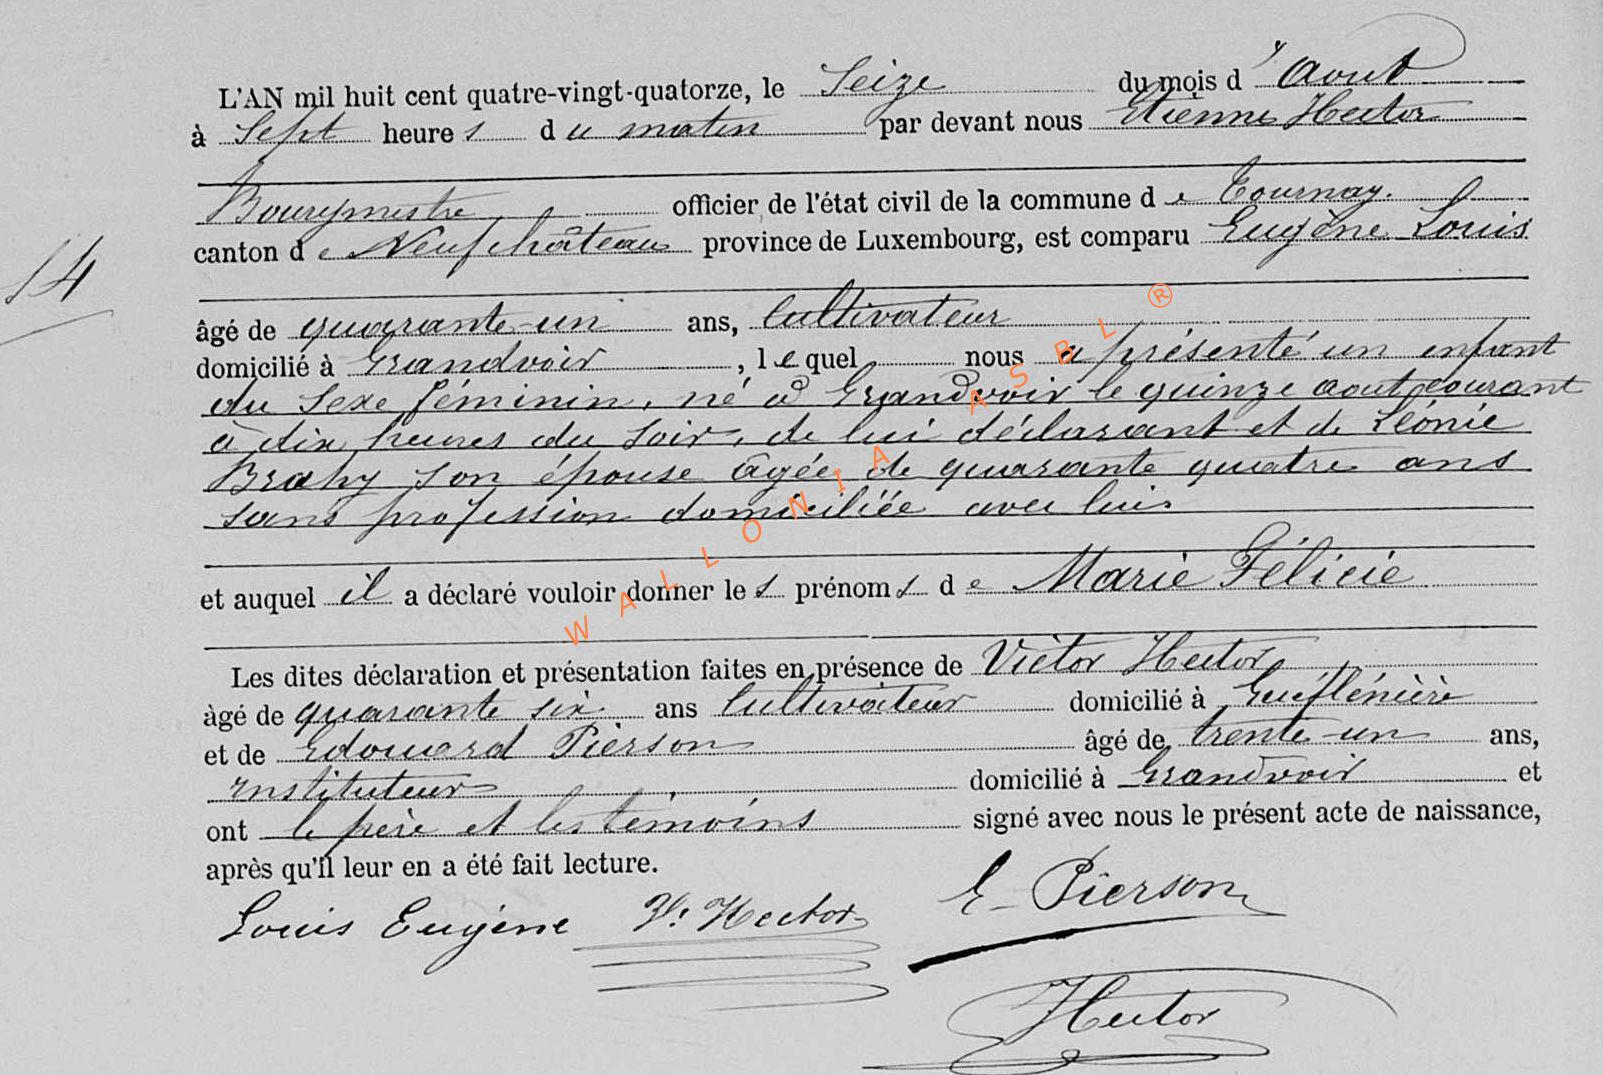 L'AN mil huit cent quatre-vingt-quatorze, le Seize du mois d'Aout
à Sept heures du matin par devant nous Etienne Hector
Bourgmestre officier de l'état civil de la commune de Tournay.
canton de Neufchâteau province de Luxembourg, est comparu Eugène Louis
14
âgé de quarante-un ans, Cultivateur
domicilié à Grandvoir, lequel nous a présenté un enfant
du sexe féminin, né à Grandvoir le quinze aout courant
à dix heures du soir, de lui déclarant et de Léonie
Brahy son épouse âgée de quarante quatre ans
sans profession domiciliée avec lui
et auquel il a déclaré vouloir donner les prénoms de Marie Félicie
Les dites déclaration et présentation faites en présence de Victor Hector
àgé de quarante six ans Cultivateur domicilié à
et de Edouard Pierson âgé de trente-un ans,
Instituteur domicilié à Grandvoir et
ont le père et les témoins signé avec nous le présent acte de naissance,
après qu'il leur en a été fait lecture.
Louis Eugène V. Hector E. Pierson
Hector
WALLONIA ASBL ®